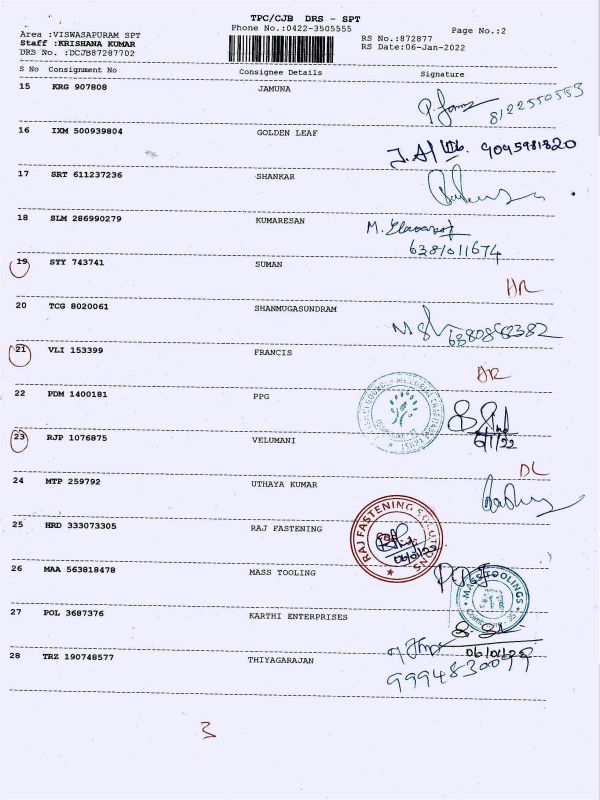 TPC/CJB DRS - SPT
Phone No.:0422-3505555
Page No.:2
Area :VISWASAPURAM SPT
RS No.:872877
Staff :KRISHANA KUMAR
RS Date:06-Jan-2022
DRS No. :DCJB87287702
S No Consignment No Consignee Details Signature
15 KRG 907808 JAMUNA
8122550553
16 IXM 500939804 GOLDEN LEAF
17 SRT 611237236 SHANKAR
18 SLM 286990279 KUMARESAN
6381011674
19 STY 743741 SUMAN
20 TCG 8020061 SHANMUGASUNDRAM
21 VLI 153399 FRANCIS
22 PDM 1400181 PPG
6/1/22
23 RJP 1076875 VELUMANI
DL
24 MTP 259792 UTHAYA KUMAR
25 HRD 333073305 RAJ FASTENING
RAJ FASTENING SOLUTIONS
26 MAA 563818478 MASS TOOLING
MASS TOOLINGS
27 POL 3687376 KARTHI ENTERPRISES
28 TRZ 190748577 THIYAGARAJAN
3